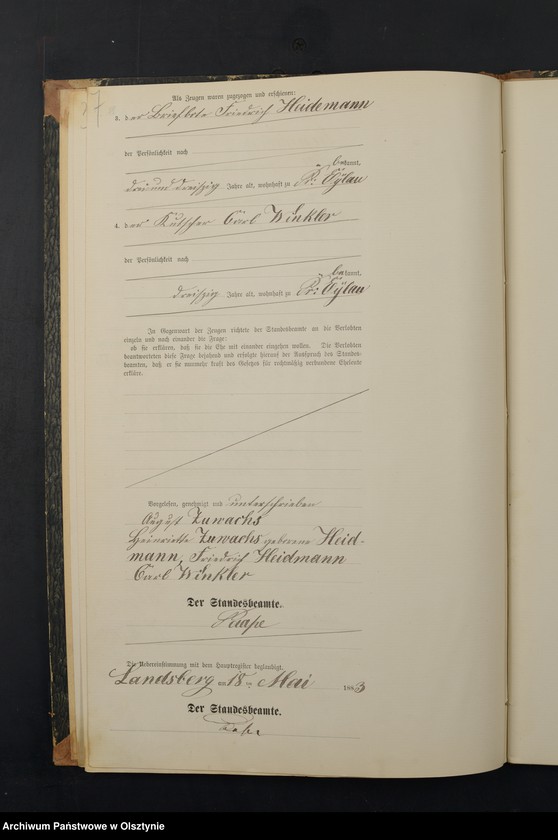 Als Zeugen waren zugezogen und erschienen:
3. der Briefbote Friedrich Heidemann
der Persönlichkeit nach
bekannt,
drei und dreißig Jahre alt, wohnhaft zu Pr: Eylau
4. der Kutscher Carl Winkler
der Persönlichkeit nach
bekannt,
dreißig Jahre alt, wohnhaft zu Pr: Eylau
In Gegenwart der Zeugen richtete der Standesbeamte an die Verlobten
einzeln und nach einander die Frage:
ob sie erklären, daß sie die Ehe mit einander eingehen wollen. Die Verlobten
beantworteten diese Frage bejahend und erfolgte hierauf der Ausspruch des Standes-
beamten, daß er sie nunmehr kraft des Gesetzes für rechtmäßig verbundene Eheleute
erkläre.
Vorgelesen, genehmigt und unterschrieben
August Zuwachs
Heinriette Zuwachs geborene Heid-
mann, Friedrich Heidmann
Carl Winkler
Der Standesbeamte.
Die Uebereinstimmung mit dem Hauptregister beglaubigt.
Landsberg am 18 ten Mai 1883
Der Standesbeamte.
Archiwum Państwowe w Olsztynie